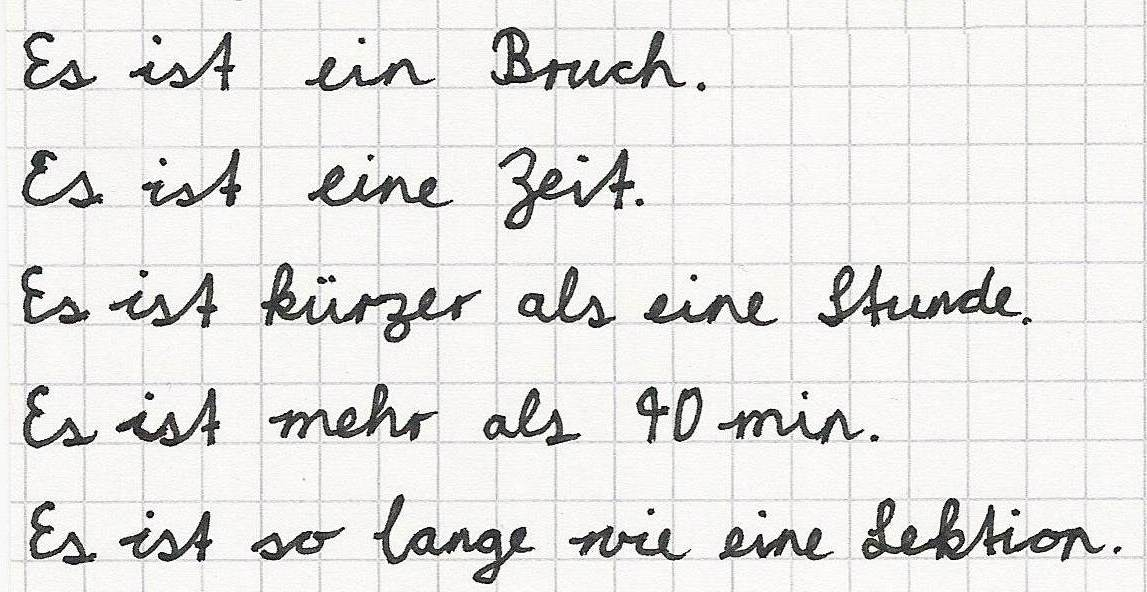 Es ist ein Bruch.
Es ist eine Zeit.
Es ist kürzer als eine Stunde.
Es ist mehr als 40 min.
Es ist so lange wie eine Lektion.